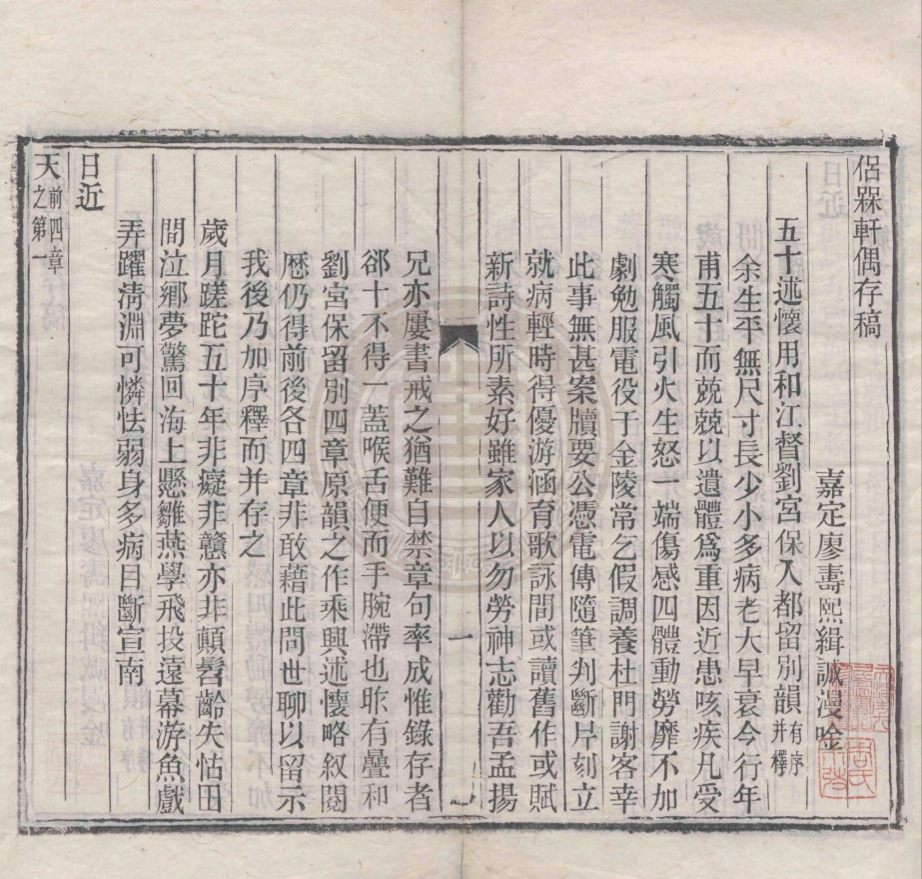 侶槑軒偶存稿
嘉定廖壽熙緝誠漫唫
五十述懷用和江督劉宮保入都留別韻有序并釋
余生平無尺寸長少小多病老大早衰今行年
甫五十而兢兢以遺體爲重因近患咳疾凡受
寒觸風引火生怒一端傷感四體動勞靡不加
劇勉服電役于金陵常乞假調養杜門謝客幸
此事無甚案牘要公憑電傳隨筆判斷片刻立
就病輕時得優游涵育歌詠間或讀舊作或賦
新詩性所素好雖家人以勿勞神志勸吾孟揚
一
兄亦屢書戒之猶難自禁章句率成惟錄存者
郤十不得一蓋喉舌便而手腕滯也昨有疊和
劉宮保留別四章原韻之作乘興述懷略叙閱
歷仍得前後各四章非敢藉此問世聊以留示
我後乃加序釋而并存之
歲月蹉跎五十年非癡非戇亦非顛髫齡失怙田
間泣鄉夢驚回海上懸雛燕學飛投遠幕游魚戲
弄躍清淵可憐怯弱身多病日斷宣南
日近
天前四章之第一